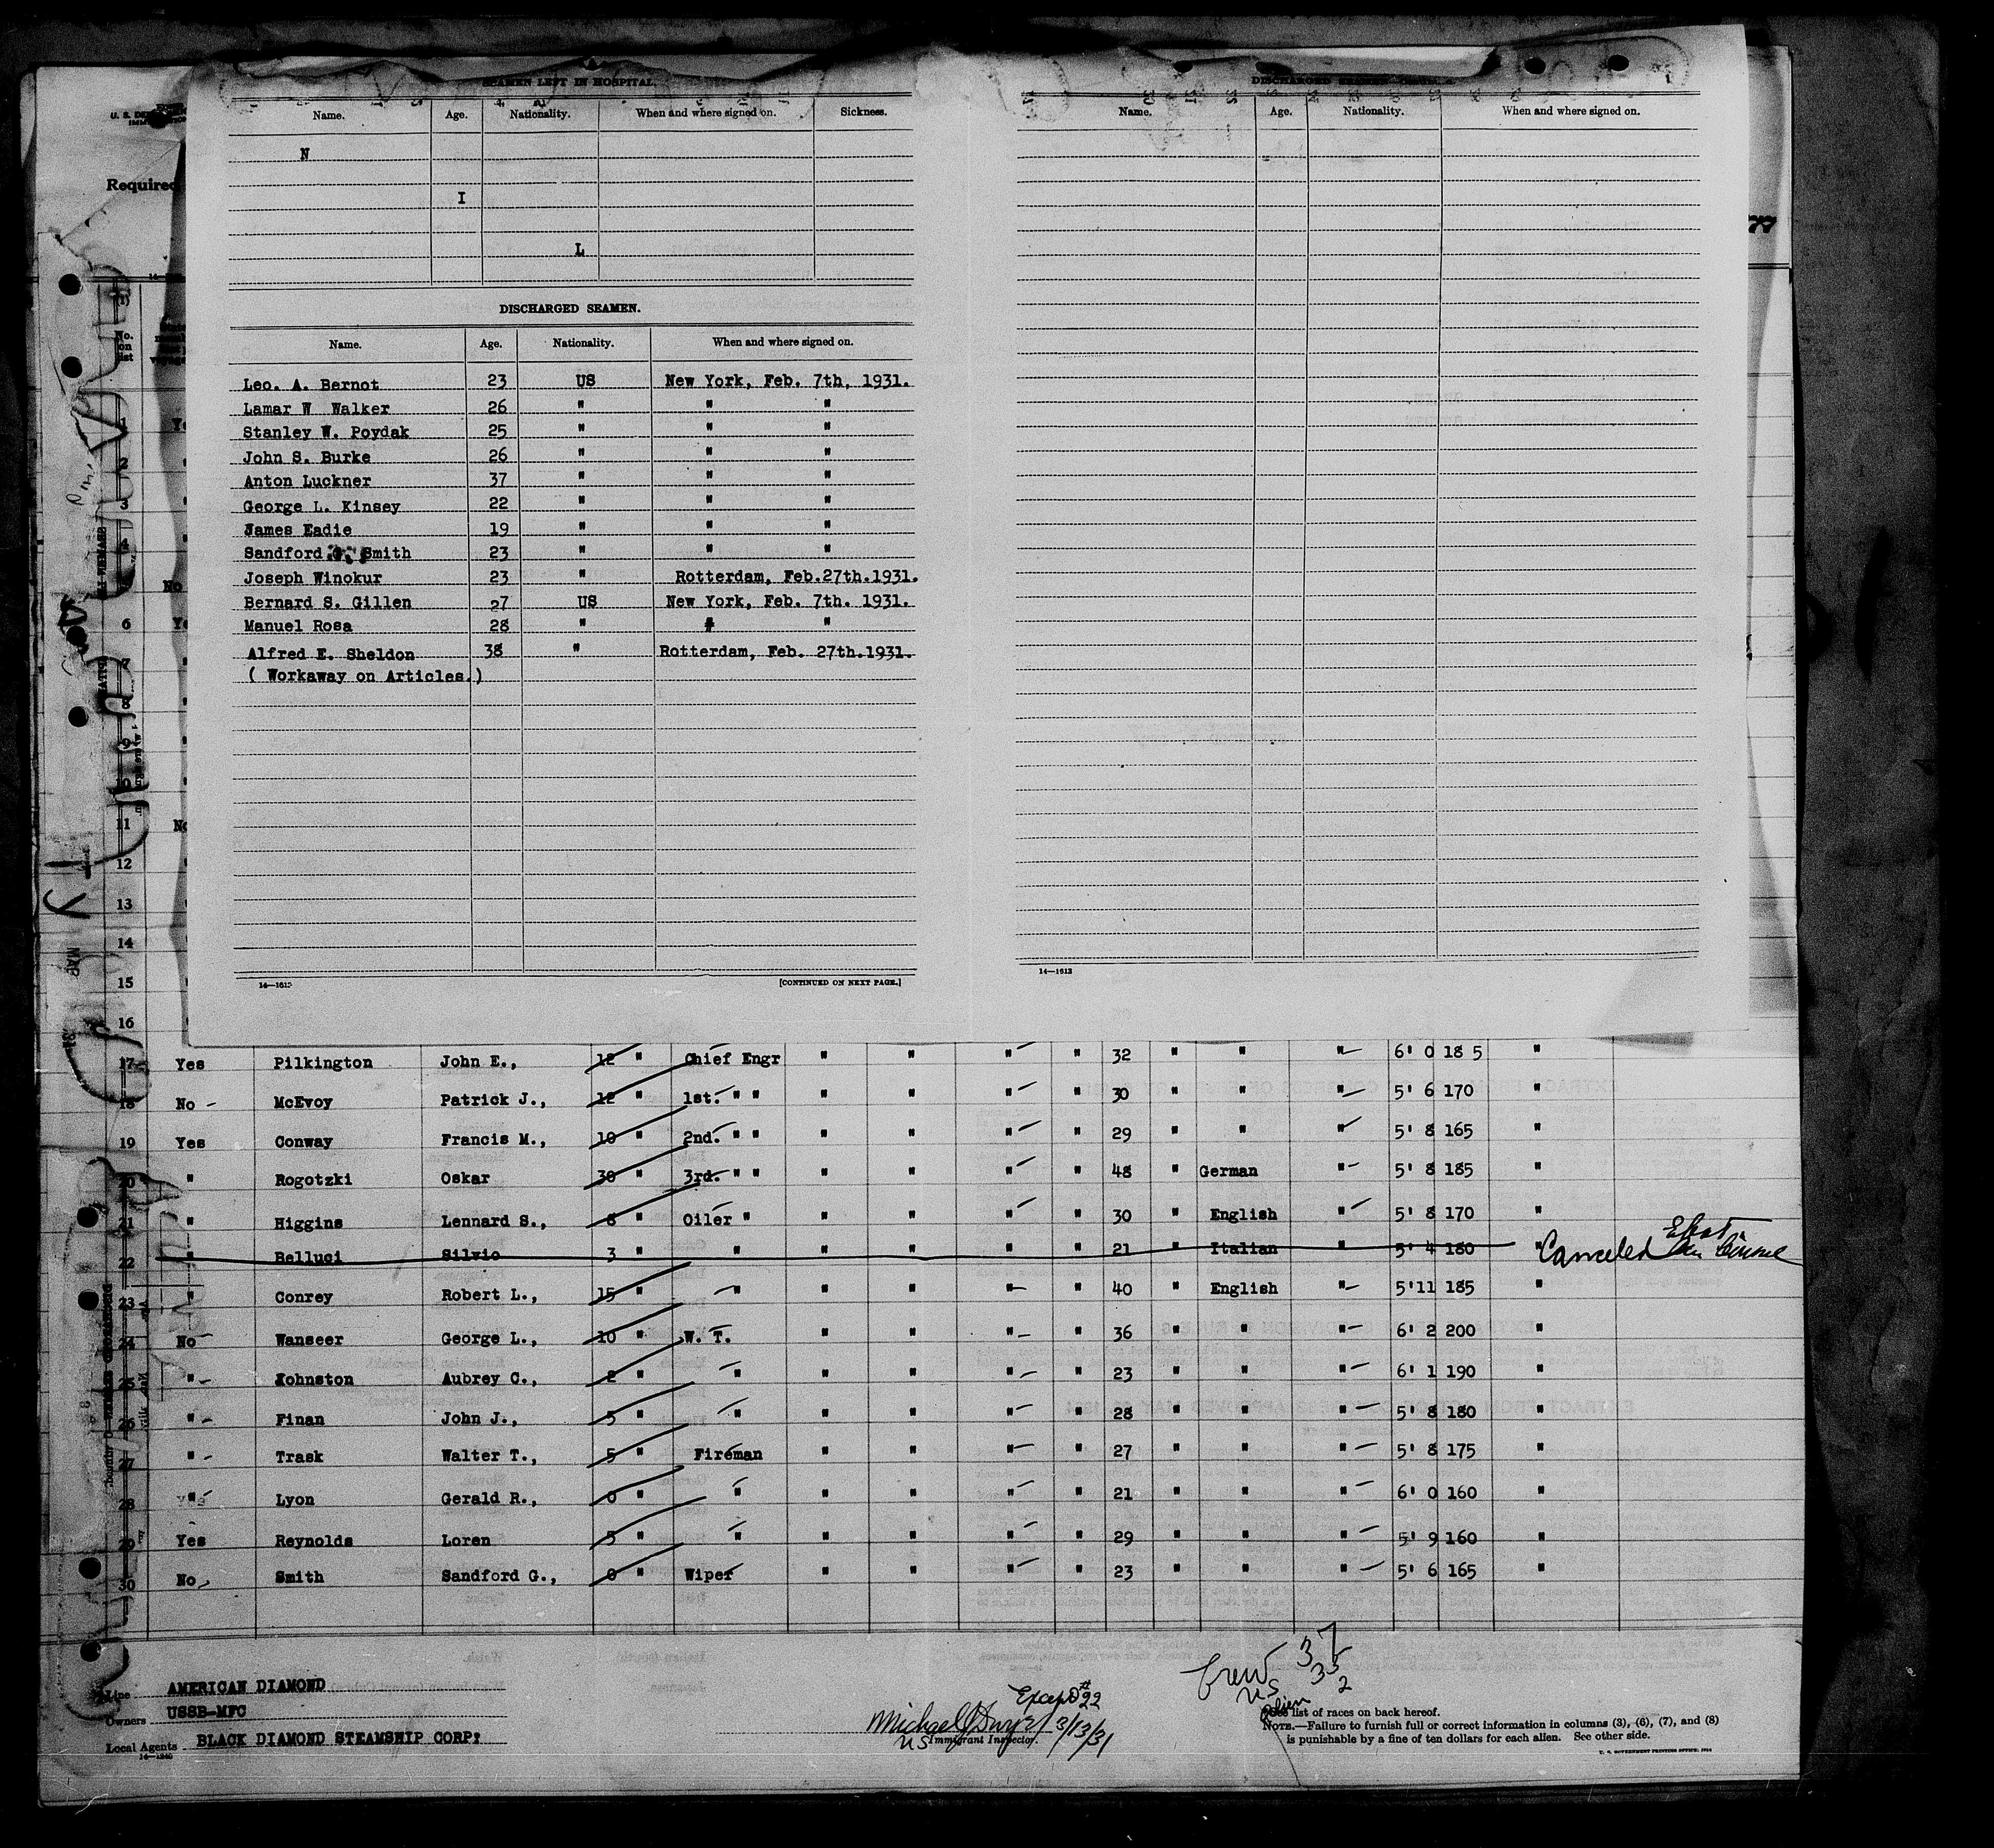 SEAMEN LEFT IN HOSPITAL.
Name. Age. Nationality. When and where signed on. Sickness.
N
I
L
DISCHARGED SEAMEN.
Name. Age. Nationality. When and where signed on.
Leo. A. Bernot 23 US New York, Feb. 7th, 1931.
Lamar W Walker 26 " " "
Stanley W. Poydak 25 " " "
John S. Burke 26 " " "
Anton Luckner 37 " " "
George L. Kinsey 22 " " "
James Eadie 19 " " "
Sandford G. Smith 23 " " "
Joseph Winokur 23 " Rotterdam, Feb.27th.1931.
Bernard S. Gillen 27 US New York, Feb. 7th. 1931.
Manuel Rosa 28 " " "
Alfred E. Sheldon 38 " Rotterdam, Feb. 27th.1931.
( Workaway on Articles.)
14—1613 [CONTINUED ON NEXT PAGE.]
DISCHARGED SEAMEN
Name. Age. Nationality. When and where signed on.
14—1613
Required
77
No. on list
2
3
4
6
7
8
9
10
11
12
13
14
15
16
17 Yes Pilkington John E., 12 " Chief Engr " " " " 32 " " " 6' 0 18 5 "
18 No - McEvoy Patrick J., 12 " 1st. " " " " " " 30 " " " 5' 6 170 "
19 Yes Conway Francis M., 10 " 2nd. " " " " " " 29 " " " 5' 8 165 "
20 " Rogotzki Oskar 30 " 3rd. " " " " " " 48 " German " 5' 8 185 "
21 " Higgins Lennard S., 8 " Oiler " " " " " 30 " English " 5' 8 170 "
22 " Belluci Silvio 3 " " " " " 21 " Italian " 5' 4 180 " Canceled
23 " Conrey Robert L., 15 " " " " " 40 " English " 5'11 185 "
24 No Wanseer George L., 10 " W. T. " " " " 36 " " " 6' 2 200 "
25 " Johnston Aubrey C., 2 " " " " " " 23 " " " 6' 1 190 "
26 " Finan John J., 5 " " " " " " 28 " " " 5' 8 180 "
27 " Trask Walter T., 5 " Fireman " " " " 27 " " " 5' 8 175 "
28 " Lyon Gerald R., 0 " " " " " " 21 " " " 6' 0 160 "
29 Yes Reynolds Loren 5 " " " " " " 29 " " " 5' 9 160 "
30 No Smith Sandford G., 0 " Wiper " " " " 23 " " " 5' 6 165 "
Crew 37
US 35
Alien 2
Line AMERICAN DIAMOND
Owners USSB-MFC
Local Agents BLACK DIAMOND STEAMSHIP CORP.
14—1240
Except #22
Michael J Dwyer 3/13/31
US Immigrant Inspector.
See list of races on back hereof.
NOTE.—Failure to furnish full or correct information in columns (3), (6), (7), and (8)
is punishable by a fine of ten dollars for each alien. See other side.